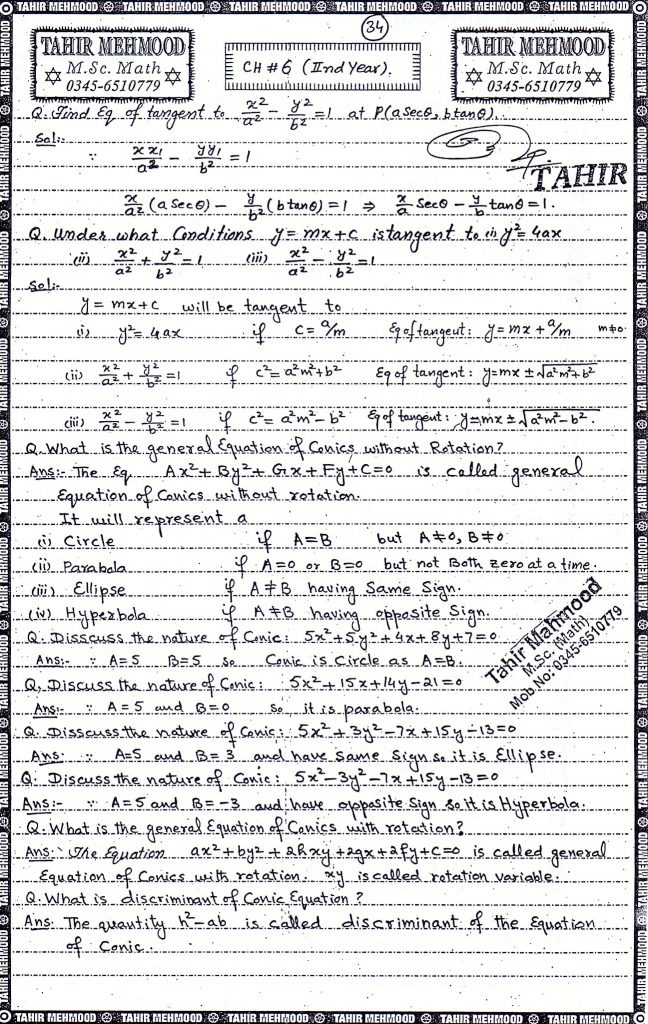 TAHIR MEHMOOD TAHIR MEHMOOD TAHIR MEHMOOD TAHIR MEHMOOD TAHIR MEHMOOD TAHIR MEHMOOD
34
TAHIR MEHMOOD
M.Sc. Math
0345-6510779
CH # 6 (IInd Year).
TAHIR MEHMOOD
M.Sc. Math
0345-6510779
Q. Find Eq of tangent to x²/a² - y²/b² = 1 at P(a Secθ, b tanθ).
Sol:-
∵ xx₁/a² - yy₁/b² = 1
TAHIR
x/a² (a Secθ) - y/b² (b tanθ) = 1 ⇒ x/a Secθ - y/b tanθ = 1.
Q. Under what Conditions y = mx+c is tangent to (i) y² = 4ax
(ii) x²/a² + y²/b² = 1 (iii) x²/a² - y²/b² = 1
Sol:-
y = mx+c will be tangent to
(i) y² = 4ax if c = a/m Eq of tangent: y = mx + a/m m≠0
(ii) x²/a² + y²/b² = 1 if c² = a²m² + b² Eq of tangent: y = mx ± √a²m²+b²
(iii) x²/a² - y²/b² = 1 if c² = a²m² - b² Eq of tangent: y = mx ± √a²m²-b².
Q. What is the general Equation of Conics without Rotation?
Ans:- The Eq Ax² + By² + Gx + Fy + C = 0 is called general
Equation of Conics without rotation.
It will represent a
(i) Circle if A = B but A≠0, B≠0
(ii) Parabola if A=0 or B=0 but not Both zero at a time.
(iii) Ellipse if A≠B having Same Sign.
(iv) Hyperbola if A≠B having opposite Sign.
Tahir Mahmood
M.Sc. (Math)
Mob No: 0345-6510779
Q. Disscuss the nature of Conic: 5x²+5y²+4x+8y+7=0
Ans:- ∵ A=5 B=5 so Conic is Circle as A=B.
Q. Discuss the nature of Conic: 5x²+15x+14y-21=0
Ans:- ∵ A=5 and B=0 So, it is parabola.
Q. Disscuss the nature of Conic: 5x²+3y²-7x+15y-13=0
Ans: ∵ A=5 and B=3 and have same sign so it is Ellipse.
Q. Discuss the nature of Conic: 5x²-3y²-7x+15y-13=0
Ans:- ∵ A=5 and B=-3 and have opposite Sign so it is Hyperbola.
Q. What is the general Equation of Conics with rotation?
Ans:- The Equation ax²+by²+2hxy+2gx+2fy+c=0 is called general
Equation of Conics with rotation. xy is called rotation variable.
Q. What is discriminant of Conic Equation?
Ans: The quantity h²-ab is called discriminant of the Equation
of Conic.
TAHIR MEHMOOD TAHIR MEHMOOD TAHIR MEHMOOD TAHIR MEHMOOD TAHIR MEHMOOD TAHIR MEHMOOD